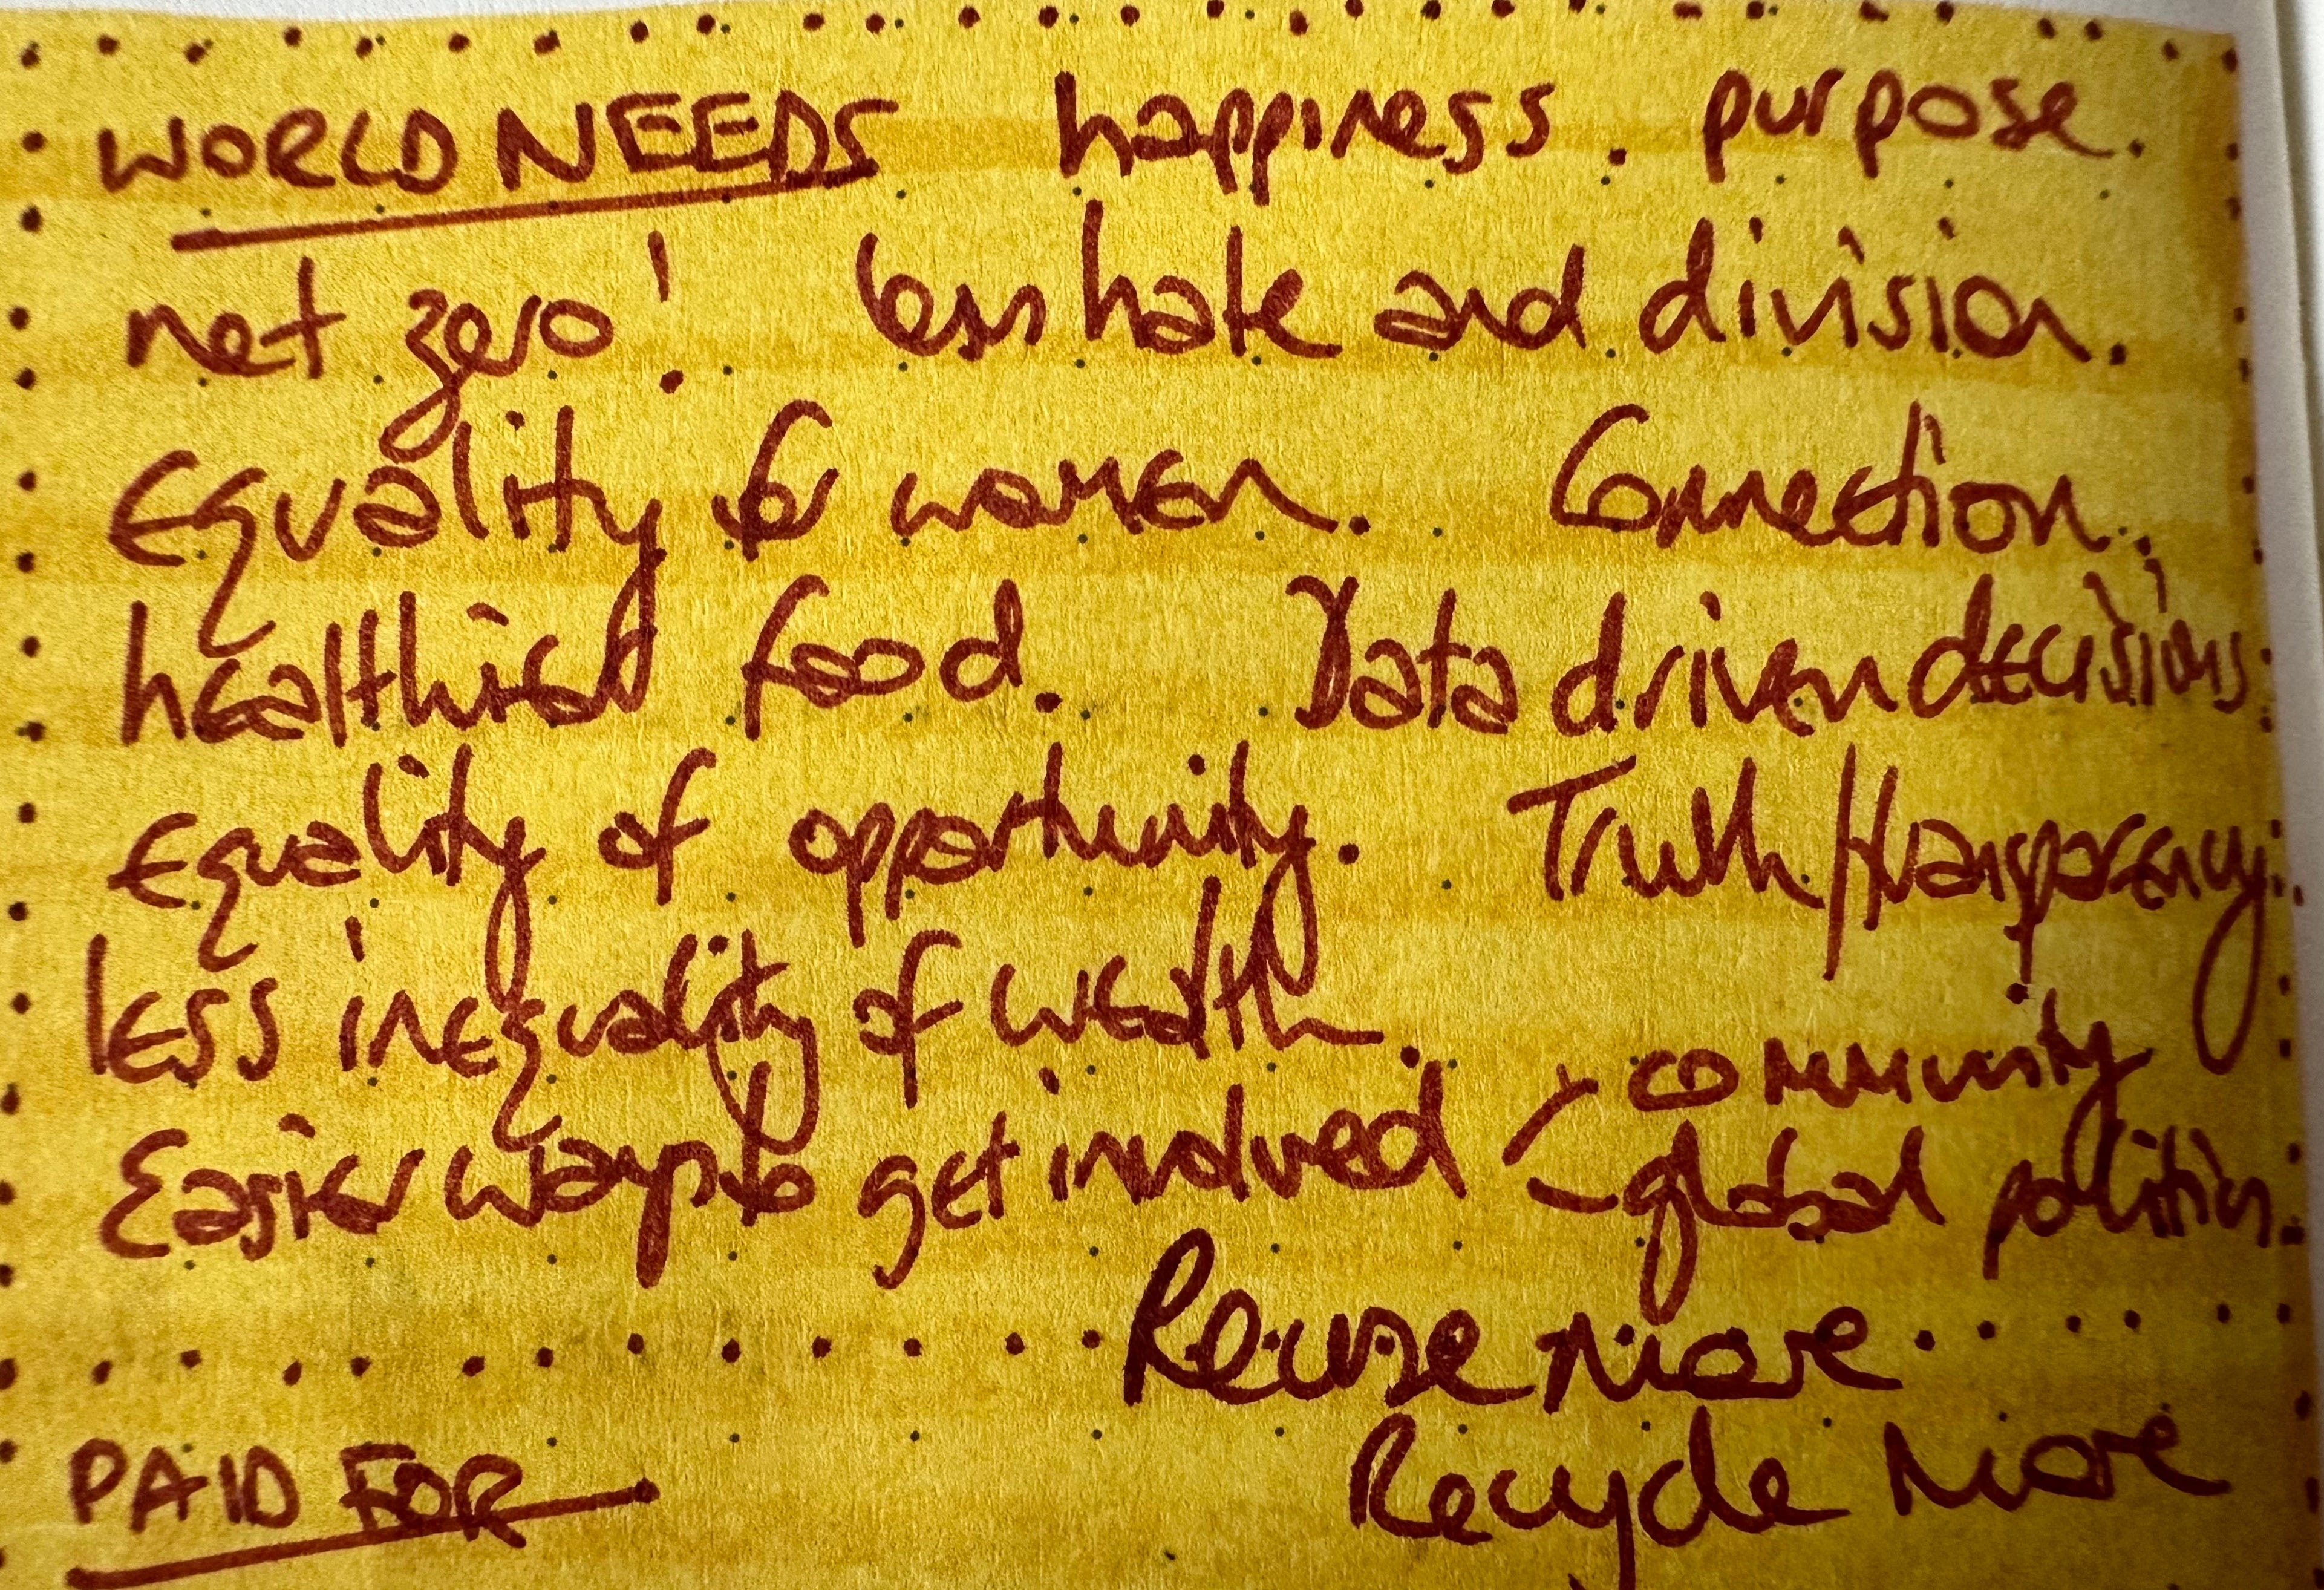 WORLD NEEDS happiness. purpose.
net zero! less hate and division.
Equality for women. Connection.
healthier food. Data driven decisions.
Equality of opportunity. Truth/transparency.
less inequality of wealth.
Easier ways to get involved - community
- global politics.
Reuse more.
Recycle more
PAID FOR